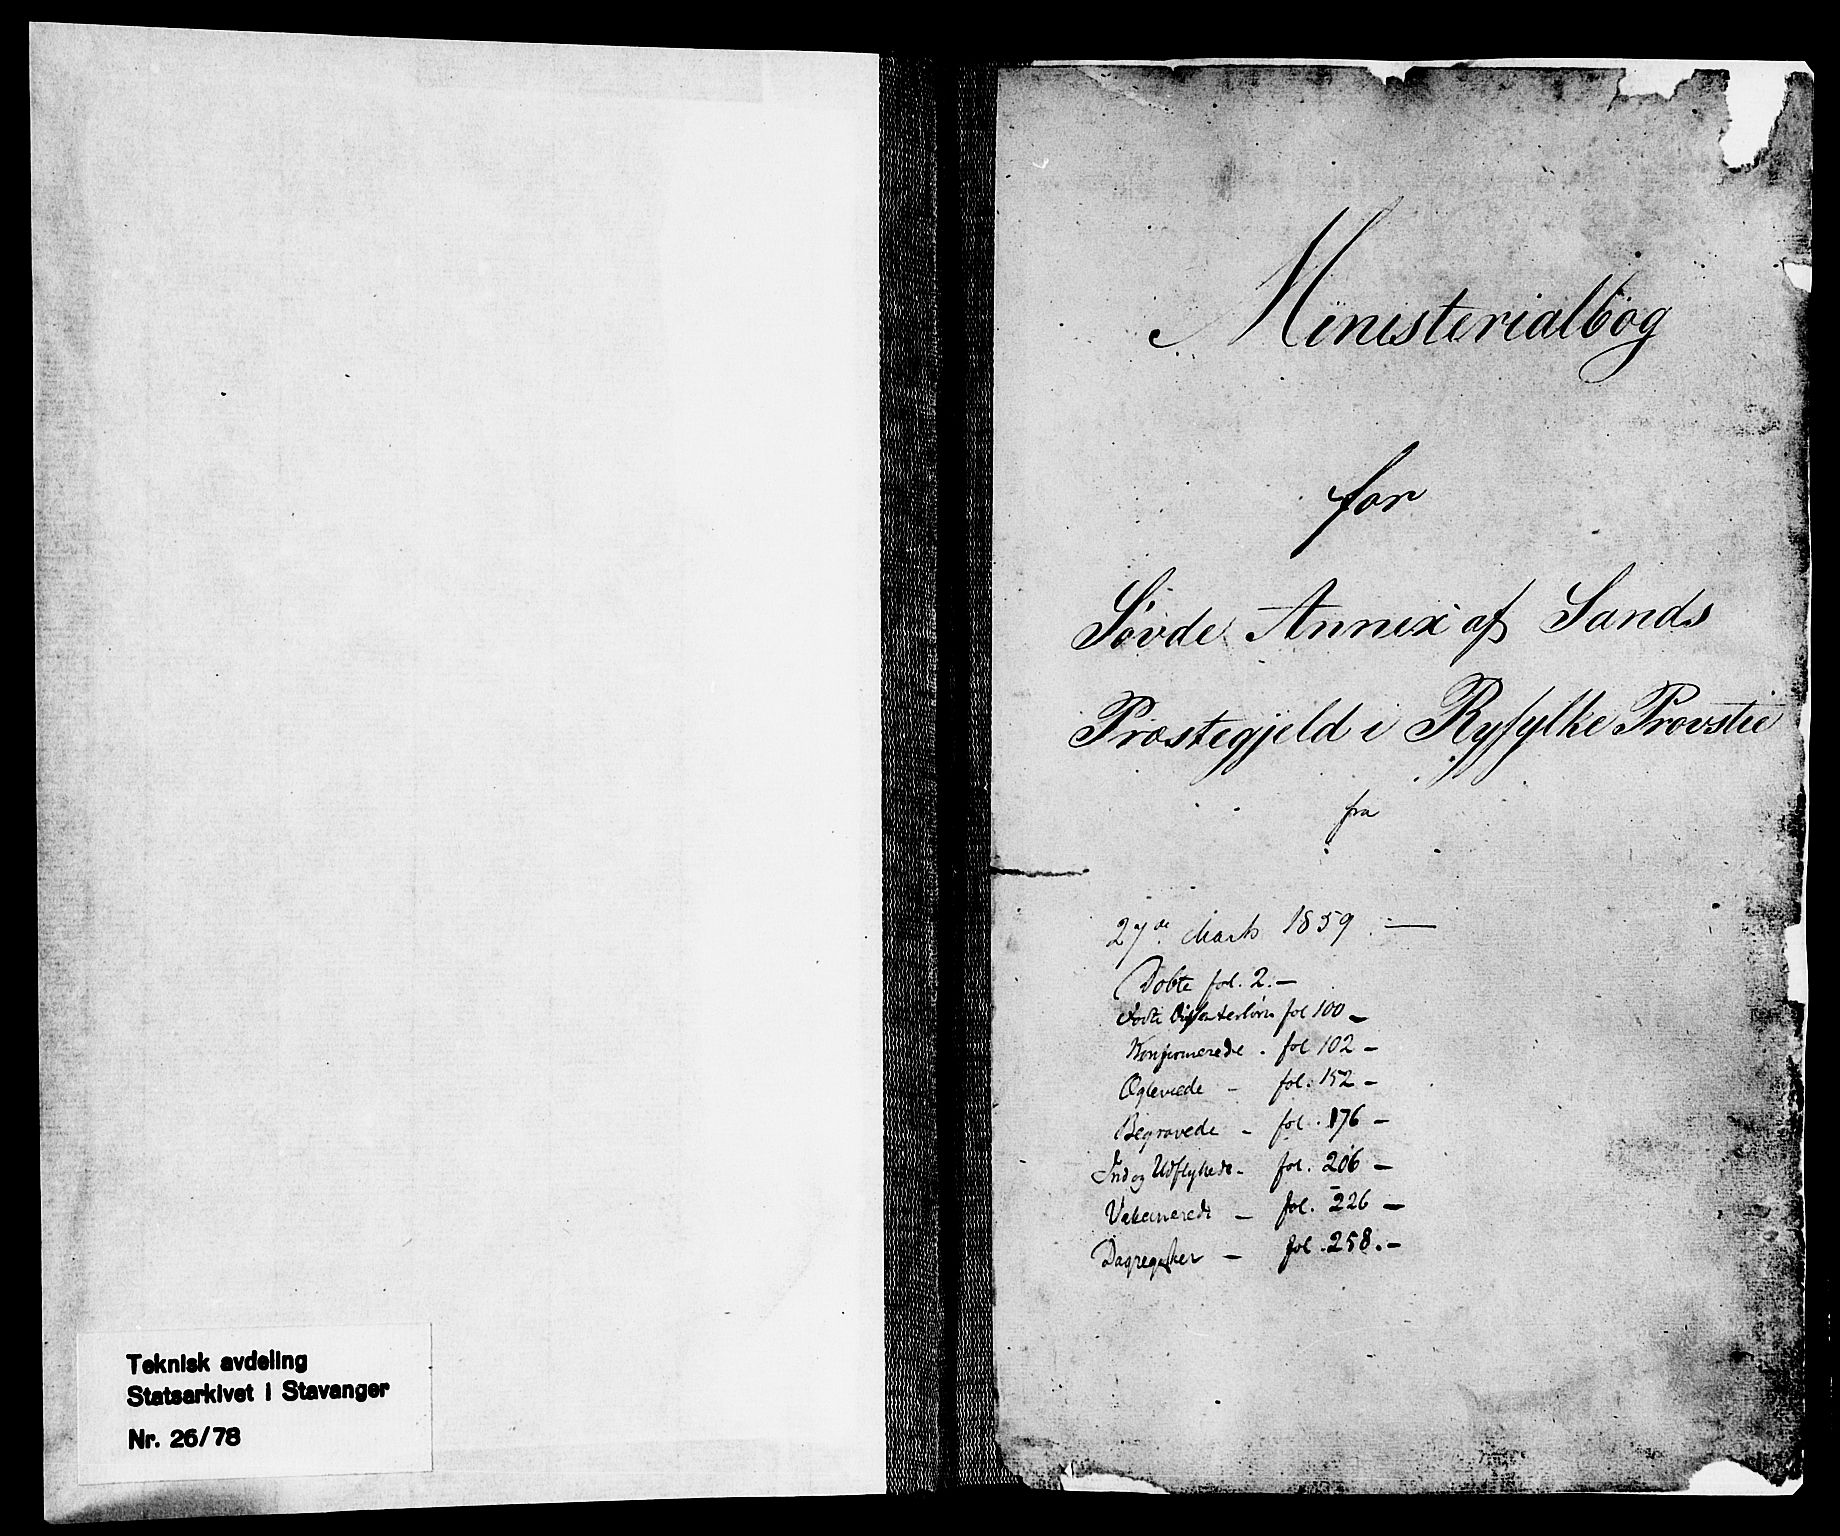 Teknisk avdeling
Statsarkivet i Stavanger
Nr. 26/78
Ministerialbog
for
Søvde Annex af Sands
Præstegjeld i Ryfylke Provstie
fra
27de Marts 1859. —
Døbte fol. 2. —
Fødte Dissenterbørn fol 100 —
Konfirmerede . fol 102 —
Ægteviede — fol. 152 —
Begravede — fol. 176 —
Ind og Udflyttede — fol. 206 —
Vakcinerede — fol. 226 —
Dagregister — fol. 258. —